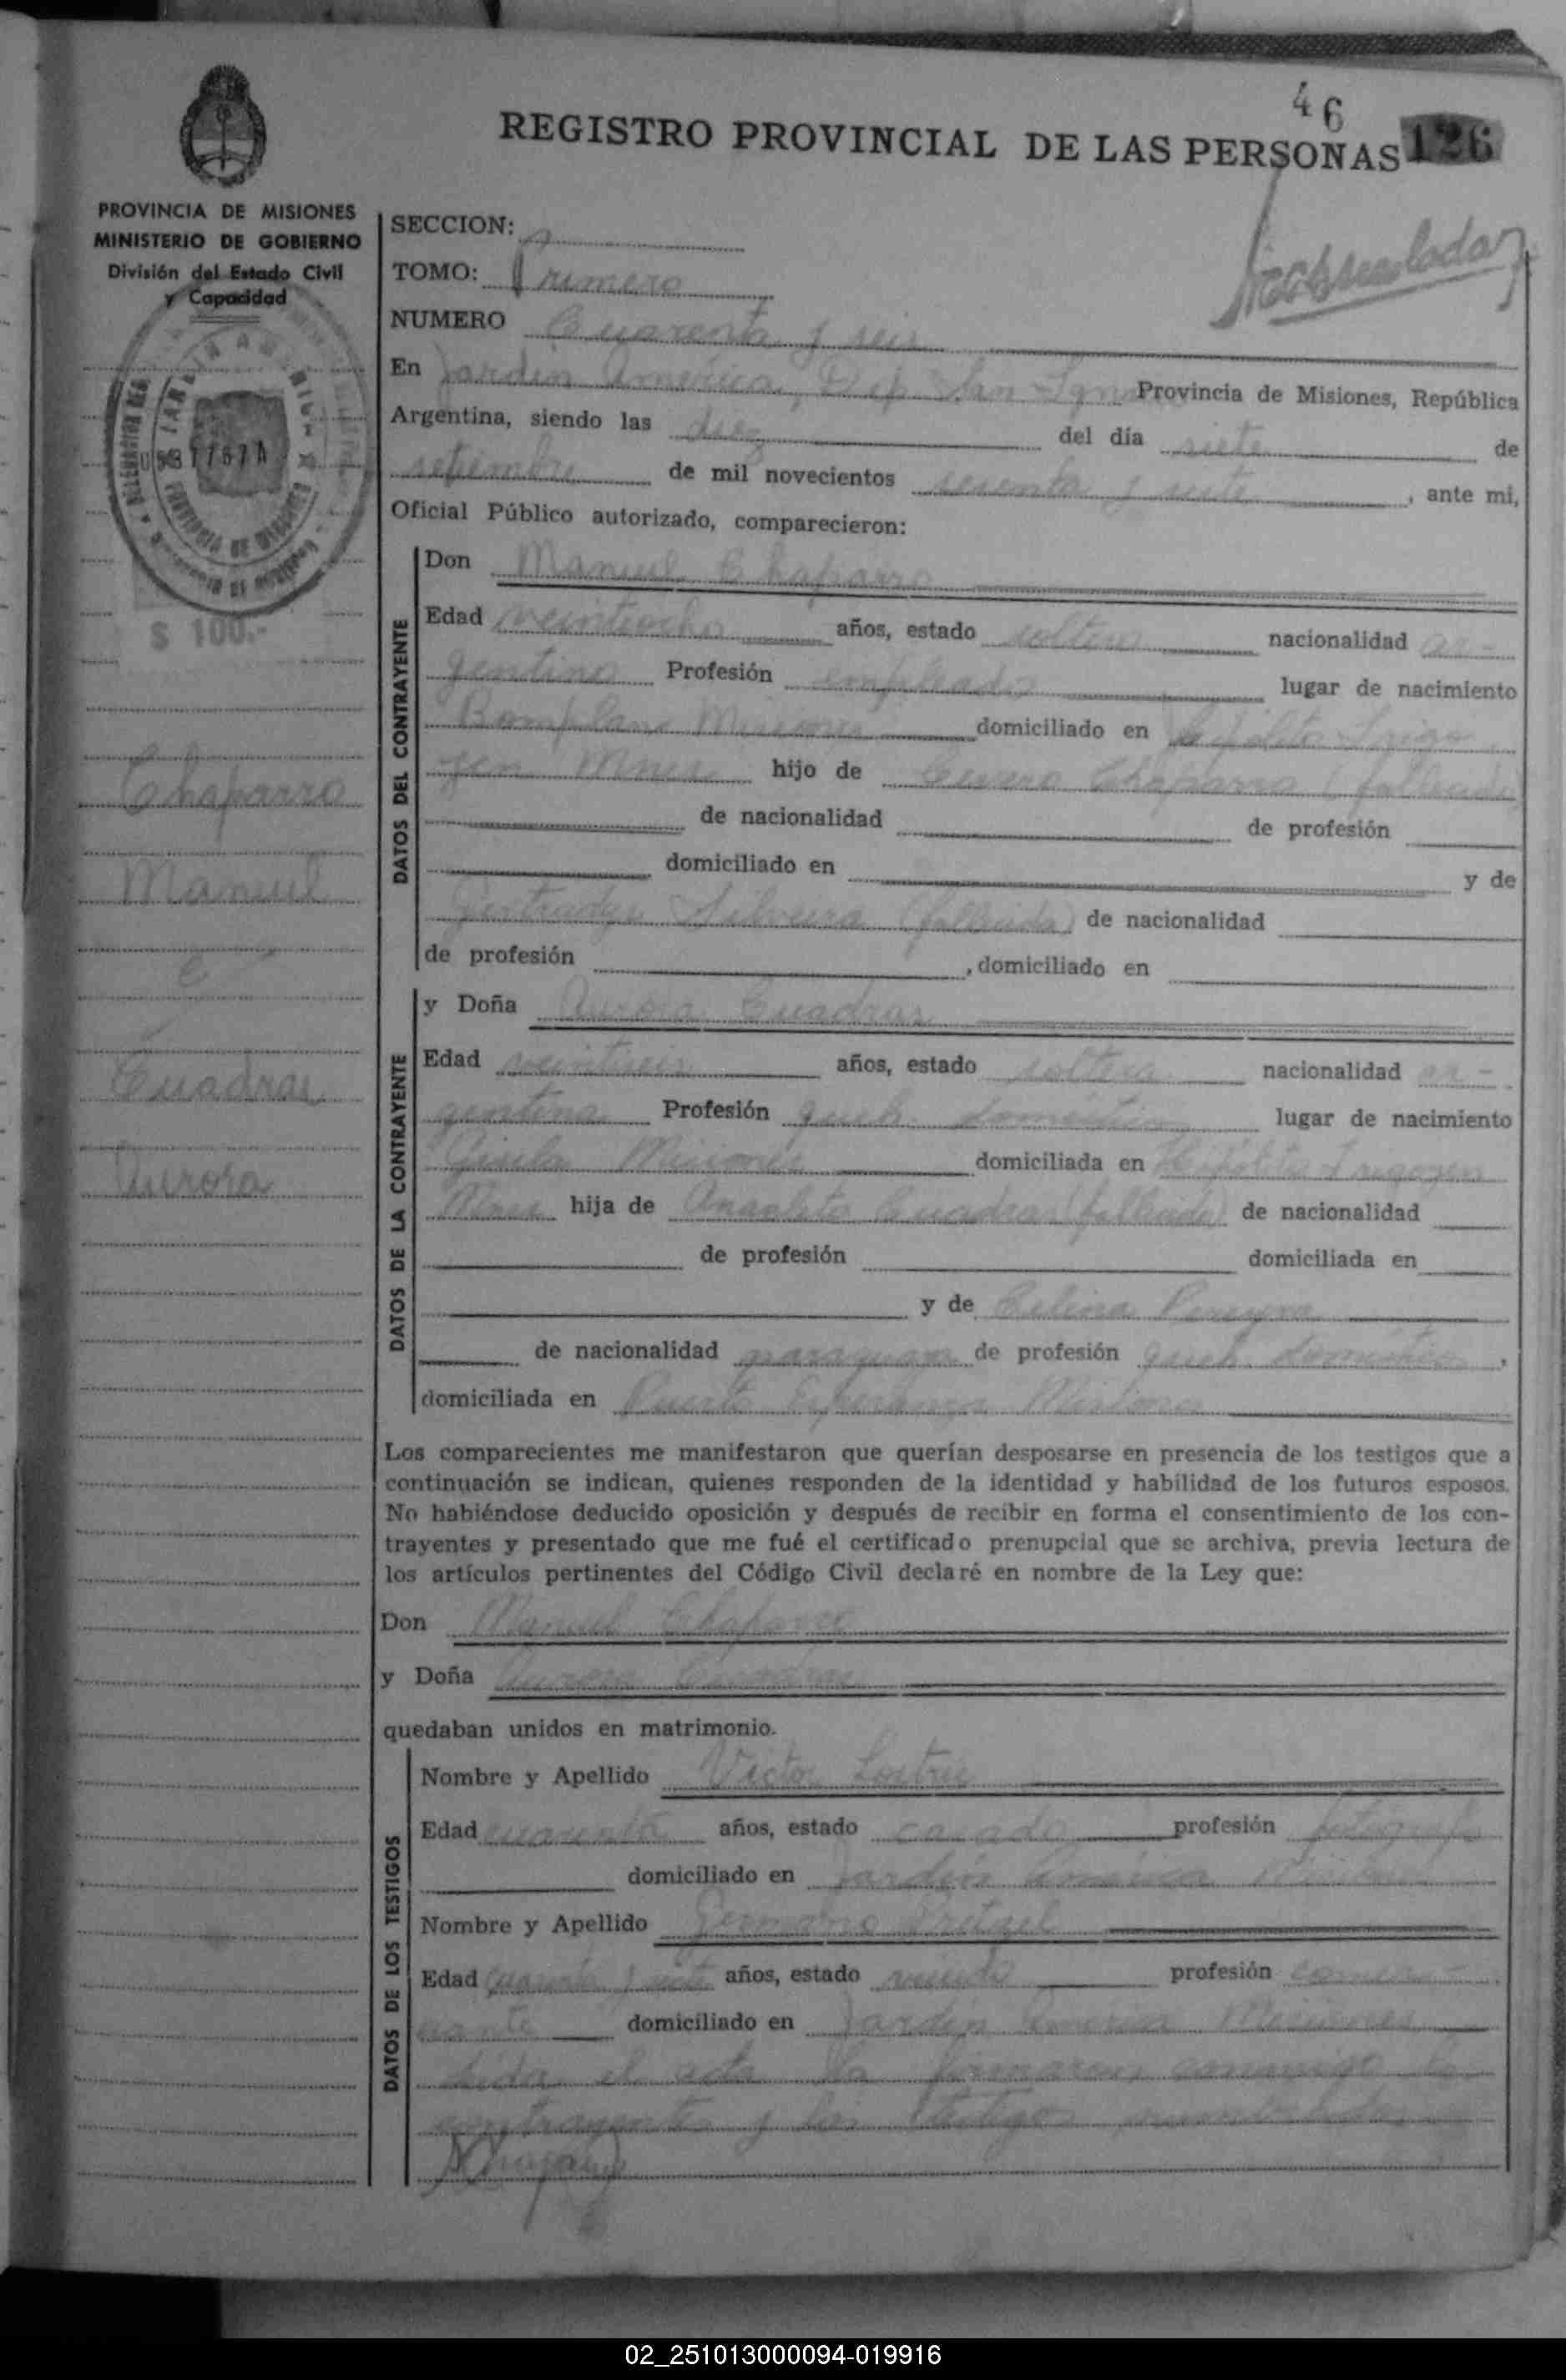 46
REGISTRO PROVINCIAL DE LAS PERSONAS 126
PROVINCIA DE MISIONES
MINISTERIO DE GOBIERNO
División del Estado Civil
y Capacidad
$ 100.-
Chaparro
Manuel
C
Cuadras
Aurora
SECCION:
TOMO: Primero
NUMERO Cuarenta y seis
En Jardín América, Dep. San Ignacio Provincia de Misiones, República
Argentina, siendo las diez del día siete de
setiembre de mil novecientos sesenta y siete, ante mi,
Oficial Público autorizado, comparecieron:
DATOS DEL CONTRAYENTE
Don Manuel Chaparro
Edad veintiocho años, estado soltero nacionalidad ar-
gentino Profesión empleado lugar de nacimiento
Bompland Misiones domiciliado en Hipólito Irigo
yen Mnes hijo de Chaparro (fallecido)
de nacionalidad de profesión
domiciliado en y de
Silveira (fallecida) de nacionalidad
de profesión , domiciliado en
DATOS DE LA CONTRAYENTE
y Doña Aurora Cuadras
Edad veintiseis años, estado soltera nacionalidad ar-
gentina Profesión queh. domésticos lugar de nacimiento
Misiones domiciliada en Hipólito Irigoyen
Mnes hija de Anacleto Cuadras (fallecido) de nacionalidad
de profesión domiciliada en
y de Celina Pereyra
de nacionalidad paraguaya de profesión queh. domésticos,
domiciliada en Puerto Esperanza Misiones
Los comparecientes me manifestaron que querían desposarse en presencia de los testigos que a
continuación se indican, quienes responden de la identidad y habilidad de los futuros esposos.
No habiéndose deducido oposición y después de recibir en forma el consentimiento de los con-
trayentes y presentado que me fué el certificado prenupcial que se archiva, previa lectura de
los artículos pertinentes del Código Civil declaré en nombre de la Ley que:
Don Manuel Chaparro
y Doña Aurora Cuadras
quedaban unidos en matrimonio.
DATOS DE LOS TESTIGOS
Nombre y Apellido Victor
Edad cuarenta años, estado casado profesión fotógrafo
domiciliado en Jardín América Misiones
Nombre y Apellido Germano
Edad cuarenta y siete años, estado viudo profesión comer-
ciante domiciliado en Jardín América Misiones
Leida el acta la firmaron conmigo los
contrayentes y los testigos nombrados
02_251013000094-019916